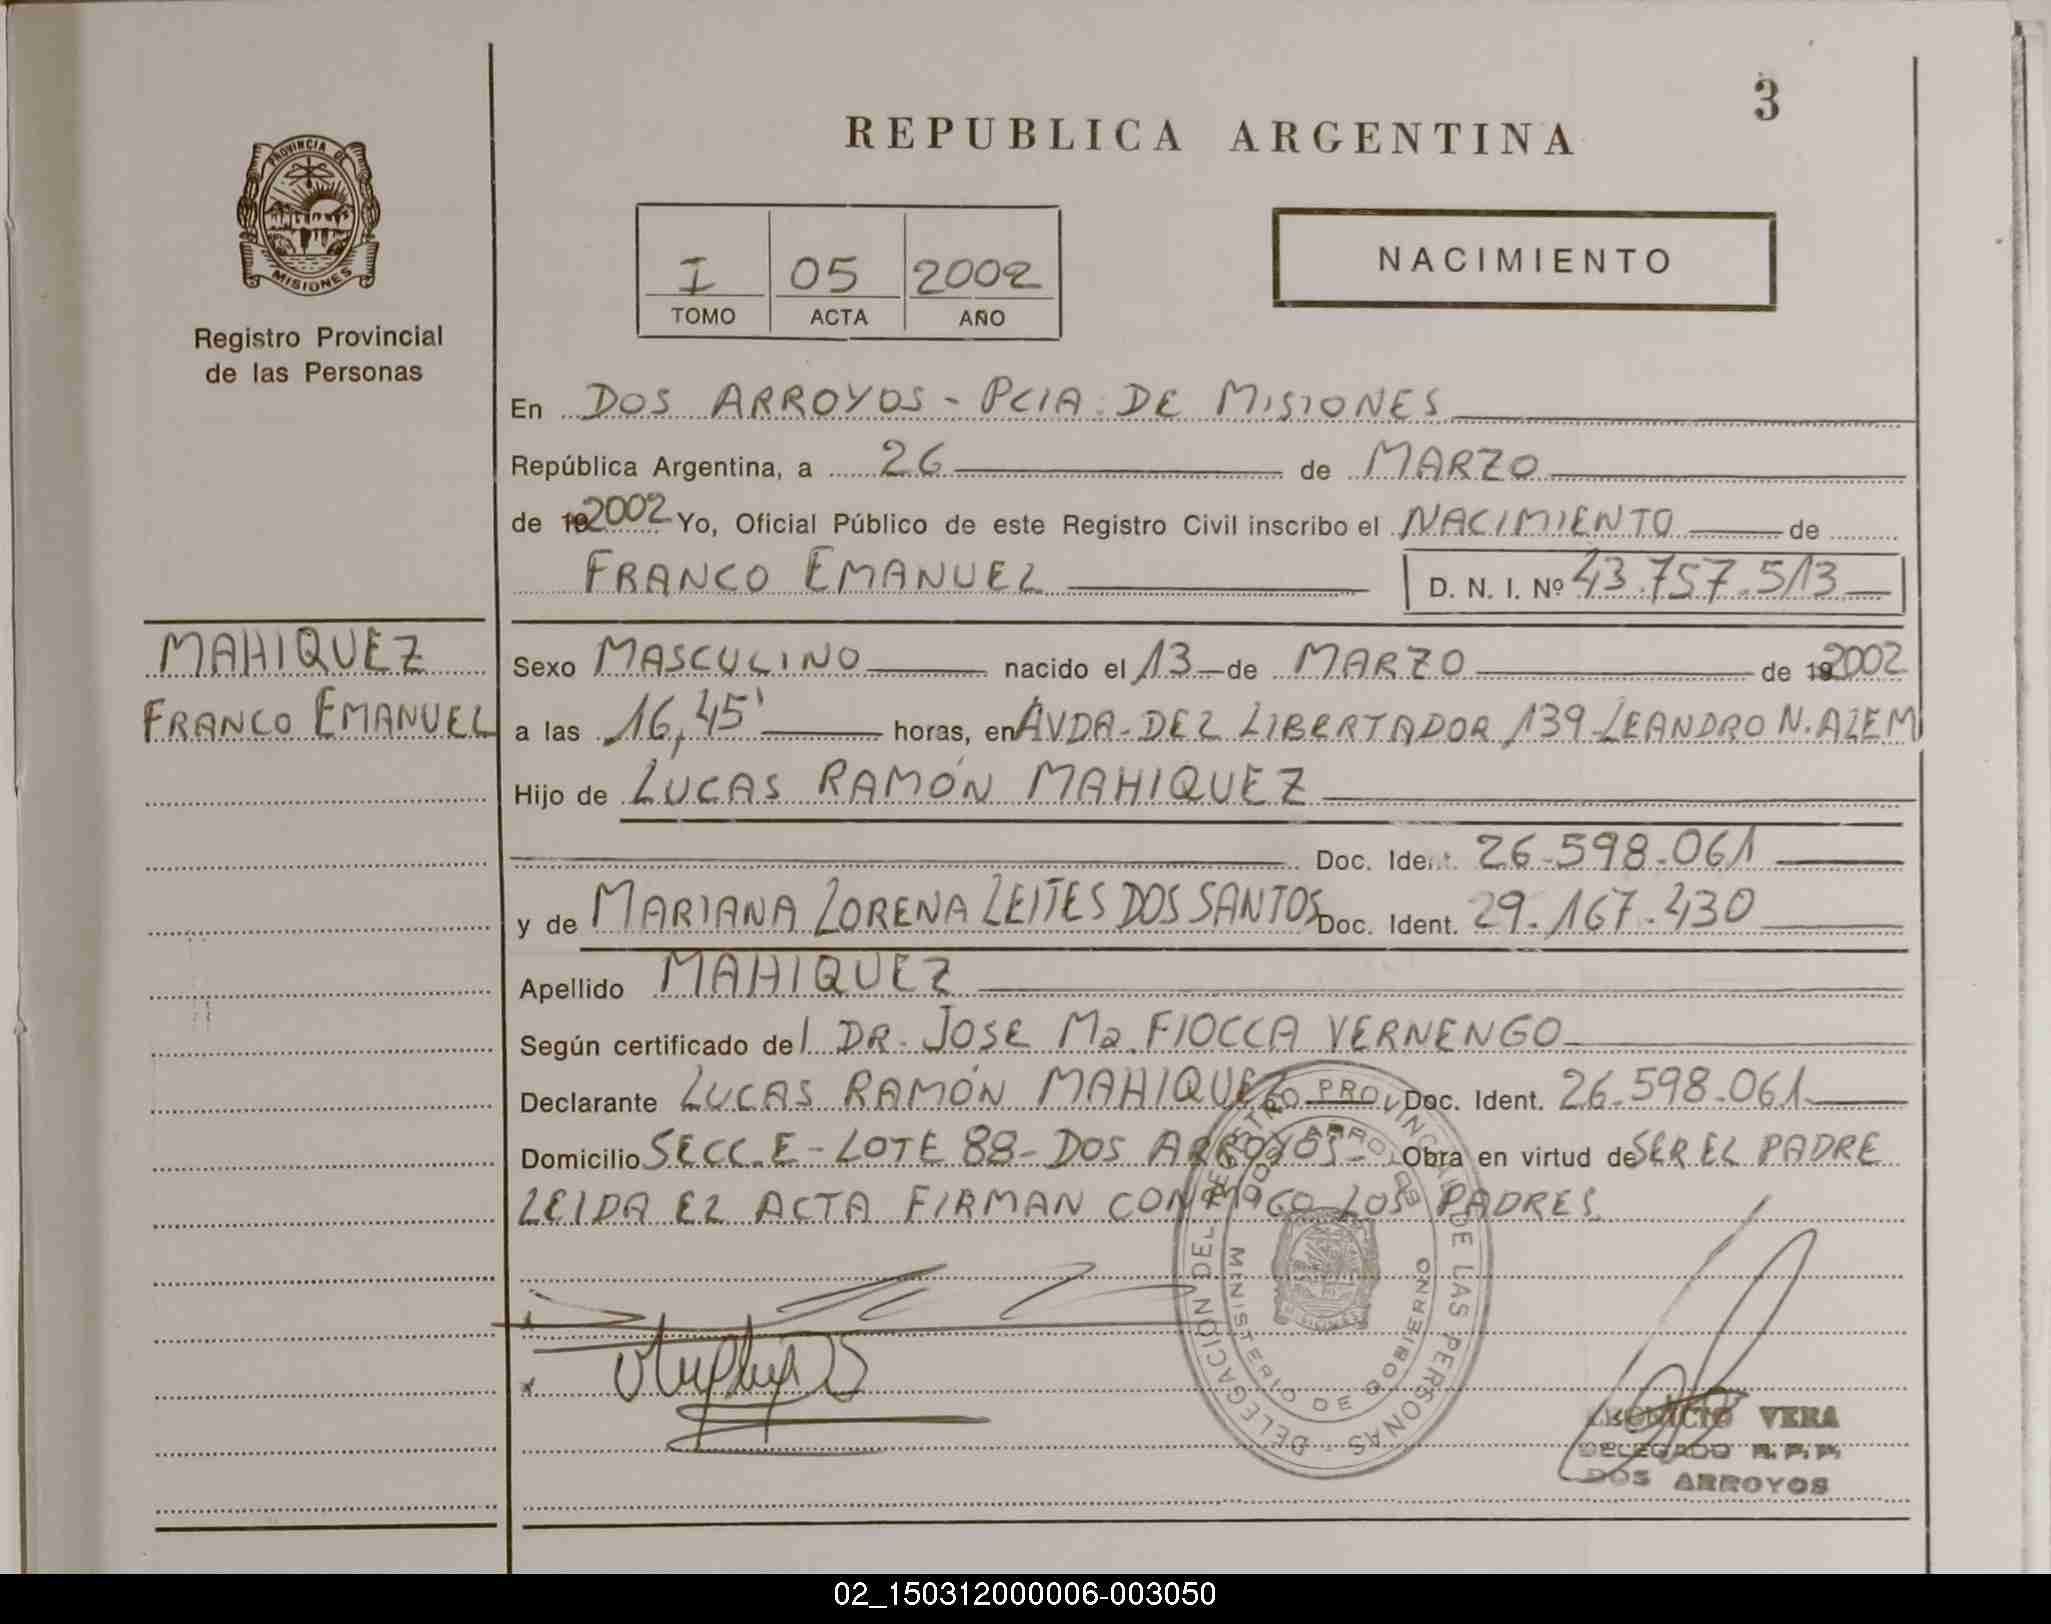 3
REPUBLICA ARGENTINA
PROVINCIA DE MISIONES
Registro Provincial
de las Personas
I 05 2002
TOMO ACTA AÑO
NACIMIENTO
En DOS ARROYOS - PCIA. DE MISIONES
República Argentina, a 26 de MARZO
de 19 2002 Yo, Oficial Público de este Registro Civil inscribo el NACIMIENTO de
FRANCO EMANUEL D. N. I. Nº 43.757.513
MAHIQUEZ
FRANCO EMANUEL
Sexo MASCULINO nacido el 13 de MARZO de 19 2002
a las 16,45' horas, en AVDA. DEL LIBERTADOR 139 LEANDRO N. ALEM
Hijo de LUCAS RAMÓN MAHIQUEZ
Doc. Ident. 26.598.061
y de MARIANA LORENA LEITES DOS SANTOS Doc. Ident. 29.167.430
Apellido MAHIQUEZ
Según certificado del DR. JOSE Ma. FIOCCA VERNENGO
Declarante LUCAS RAMÓN MAHIQUEZ Doc. Ident. 26.598.061
Domicilio SECC. E - LOTE 88 - DOS ARROYOS - Obra en virtud de SER EL PADRE
LEIDA EL ACTA FIRMAN CONMIGO LOS PADRES.
DELEGACION DEL REGISTRO PROVINCIAL DE LAS PERSONAS -
DOS ARROYOS
MINISTERIO DE GOBIERNO
VERA
DELEGADO R. P. P.
DOS ARROYOS
02_150312000006-003050